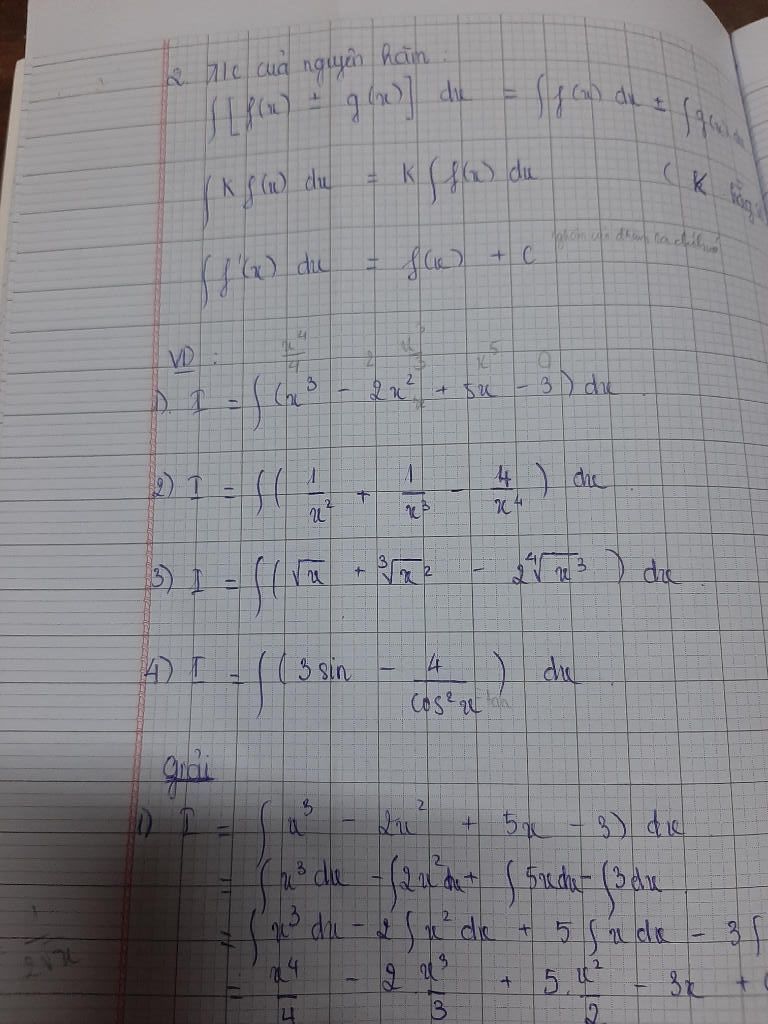 2. T/c của nguyên hàm.
∫[f(x) ± g(x)] dx = ∫f(x) dx ± ∫g(x) dx
∫K f(x) dx = K ∫f(x) dx ( K hằng
∫f'(x) dx = f(x) + C
VD:
x⁴/4 2 x³/3 x⁵ 0
1) I = ∫(x³ - 2x² + 5x - 3) dx
2) I = ∫(1/x² + 1/x³ - 4/x⁴) dx
3) I = ∫(√x + ³√x² - 2⁴√x³) dx
4) I = ∫(3sin - 4/cos²x) dx
tan
Giải
1) I = ∫x³ - 2x² + 5x - 3) dx
= ∫x³dx - ∫2x²dx + ∫5xdx - ∫3dx
= ∫x³dx - 2∫x²dx + 5∫xdx - 3∫
= x⁴/4 - 2 x³/3 + 5.x²/2 - 3x +
1/2√x